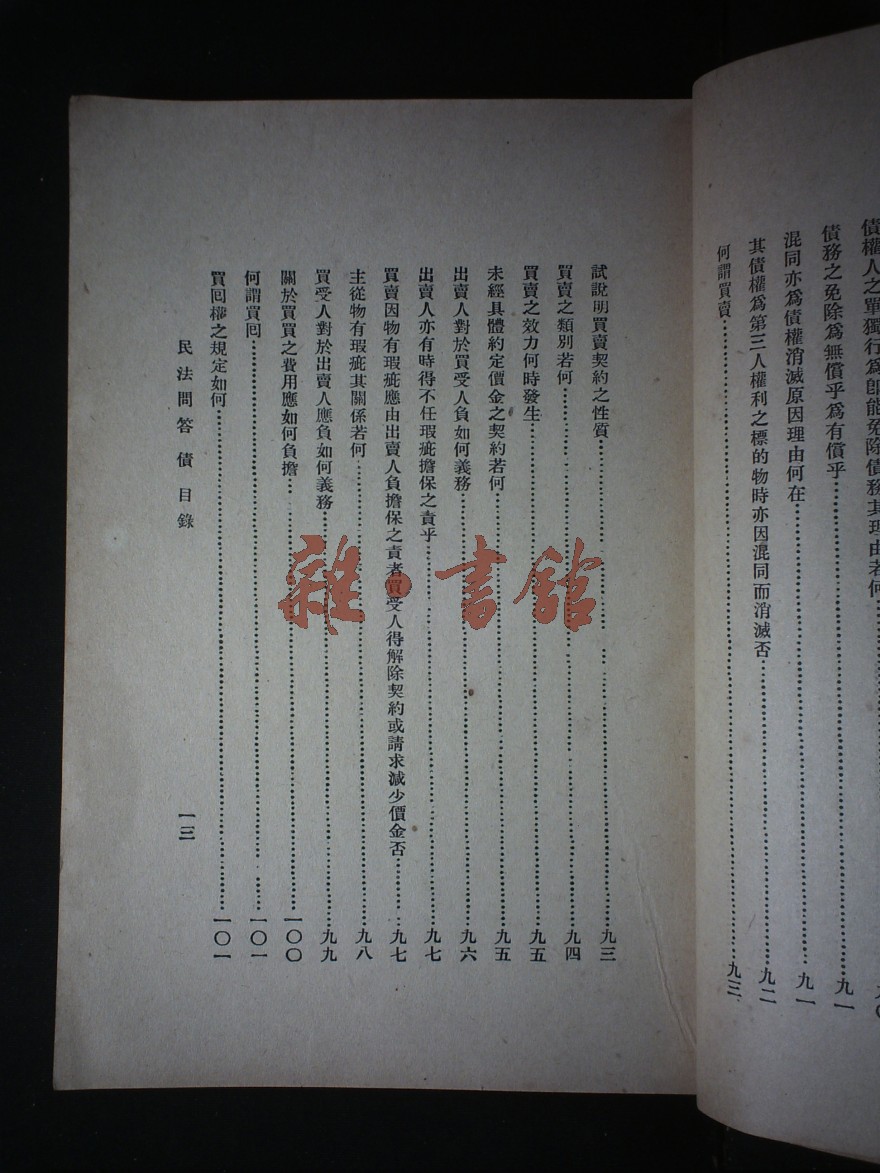 債權人之單獨行爲卽能免除債務其理由若何……九〇
債務之免除爲無償乎爲有償乎……九一
混同亦爲債權消滅原因理由何在……九一
其債權爲第三人權利之標的物時亦因混同而消滅否……九二
何謂買賣……九三
試說明買賣契約之性質……九三
買賣之類別若何……九四
買賣之效力何時發生……九五
未經具體約定價金之契約若何……九五
出賣人對於買受人負如何義務……九六
出賣人亦有時得不任瑕疵擔保之責乎……九七
買賣因物有瑕疵應由出賣人負擔保之責者買受人得解除契約或請求減少價金否……九七
主從物有瑕疵其關係若何……九八
買受人對於出賣人應負如何義務……九九
關於買買之費用應如何負擔……一〇〇
何謂買回……一〇一
買回權之規定如何……一〇一
民法問答 債 目錄 一三
雜·書館